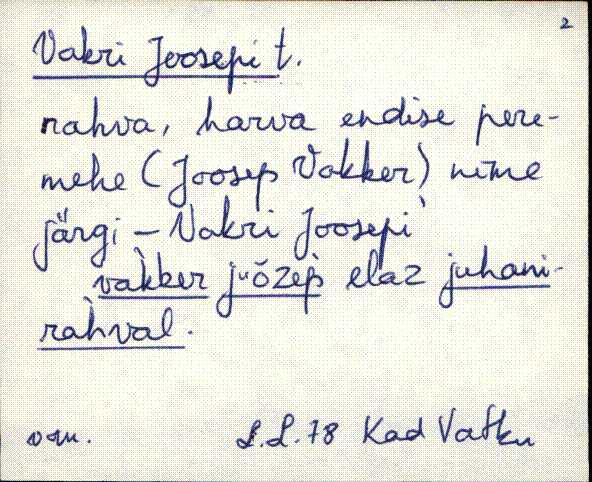 2
Vakri Joosepi t.
rahva, harva endise pere-
mehe (Joosep Vakker) nime
järgi – Vakri Joosepi
vak̀ker juõzep̀ elaz juhani-
rah̀val.
L.L. 78 Kad Vatku